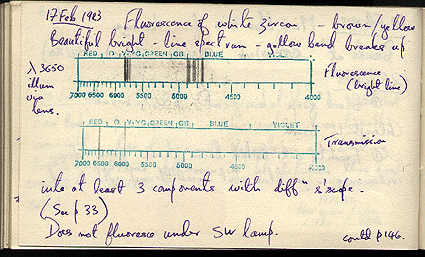 17 Feb 1983 Fluorescence of white zircon - brown/yellow
Beautiful bright-line spectrum - yellow band breaks up
RED O Y YG GREEN GB BLUE VIOLET
λ 3650
illum
via
lens.
Fluorescence
(bright line)
7000 6500 6000 5500 5000 4500 4000
RED O Y YG GREEN GB BLUE VIOLET
Transmission
7000 6500 6000 5500 5000 4500 4000
into at least 3 components with diffⁿ s'scope.
(See p 33)
Does not fluoresce under SW lamp.
could p 146.